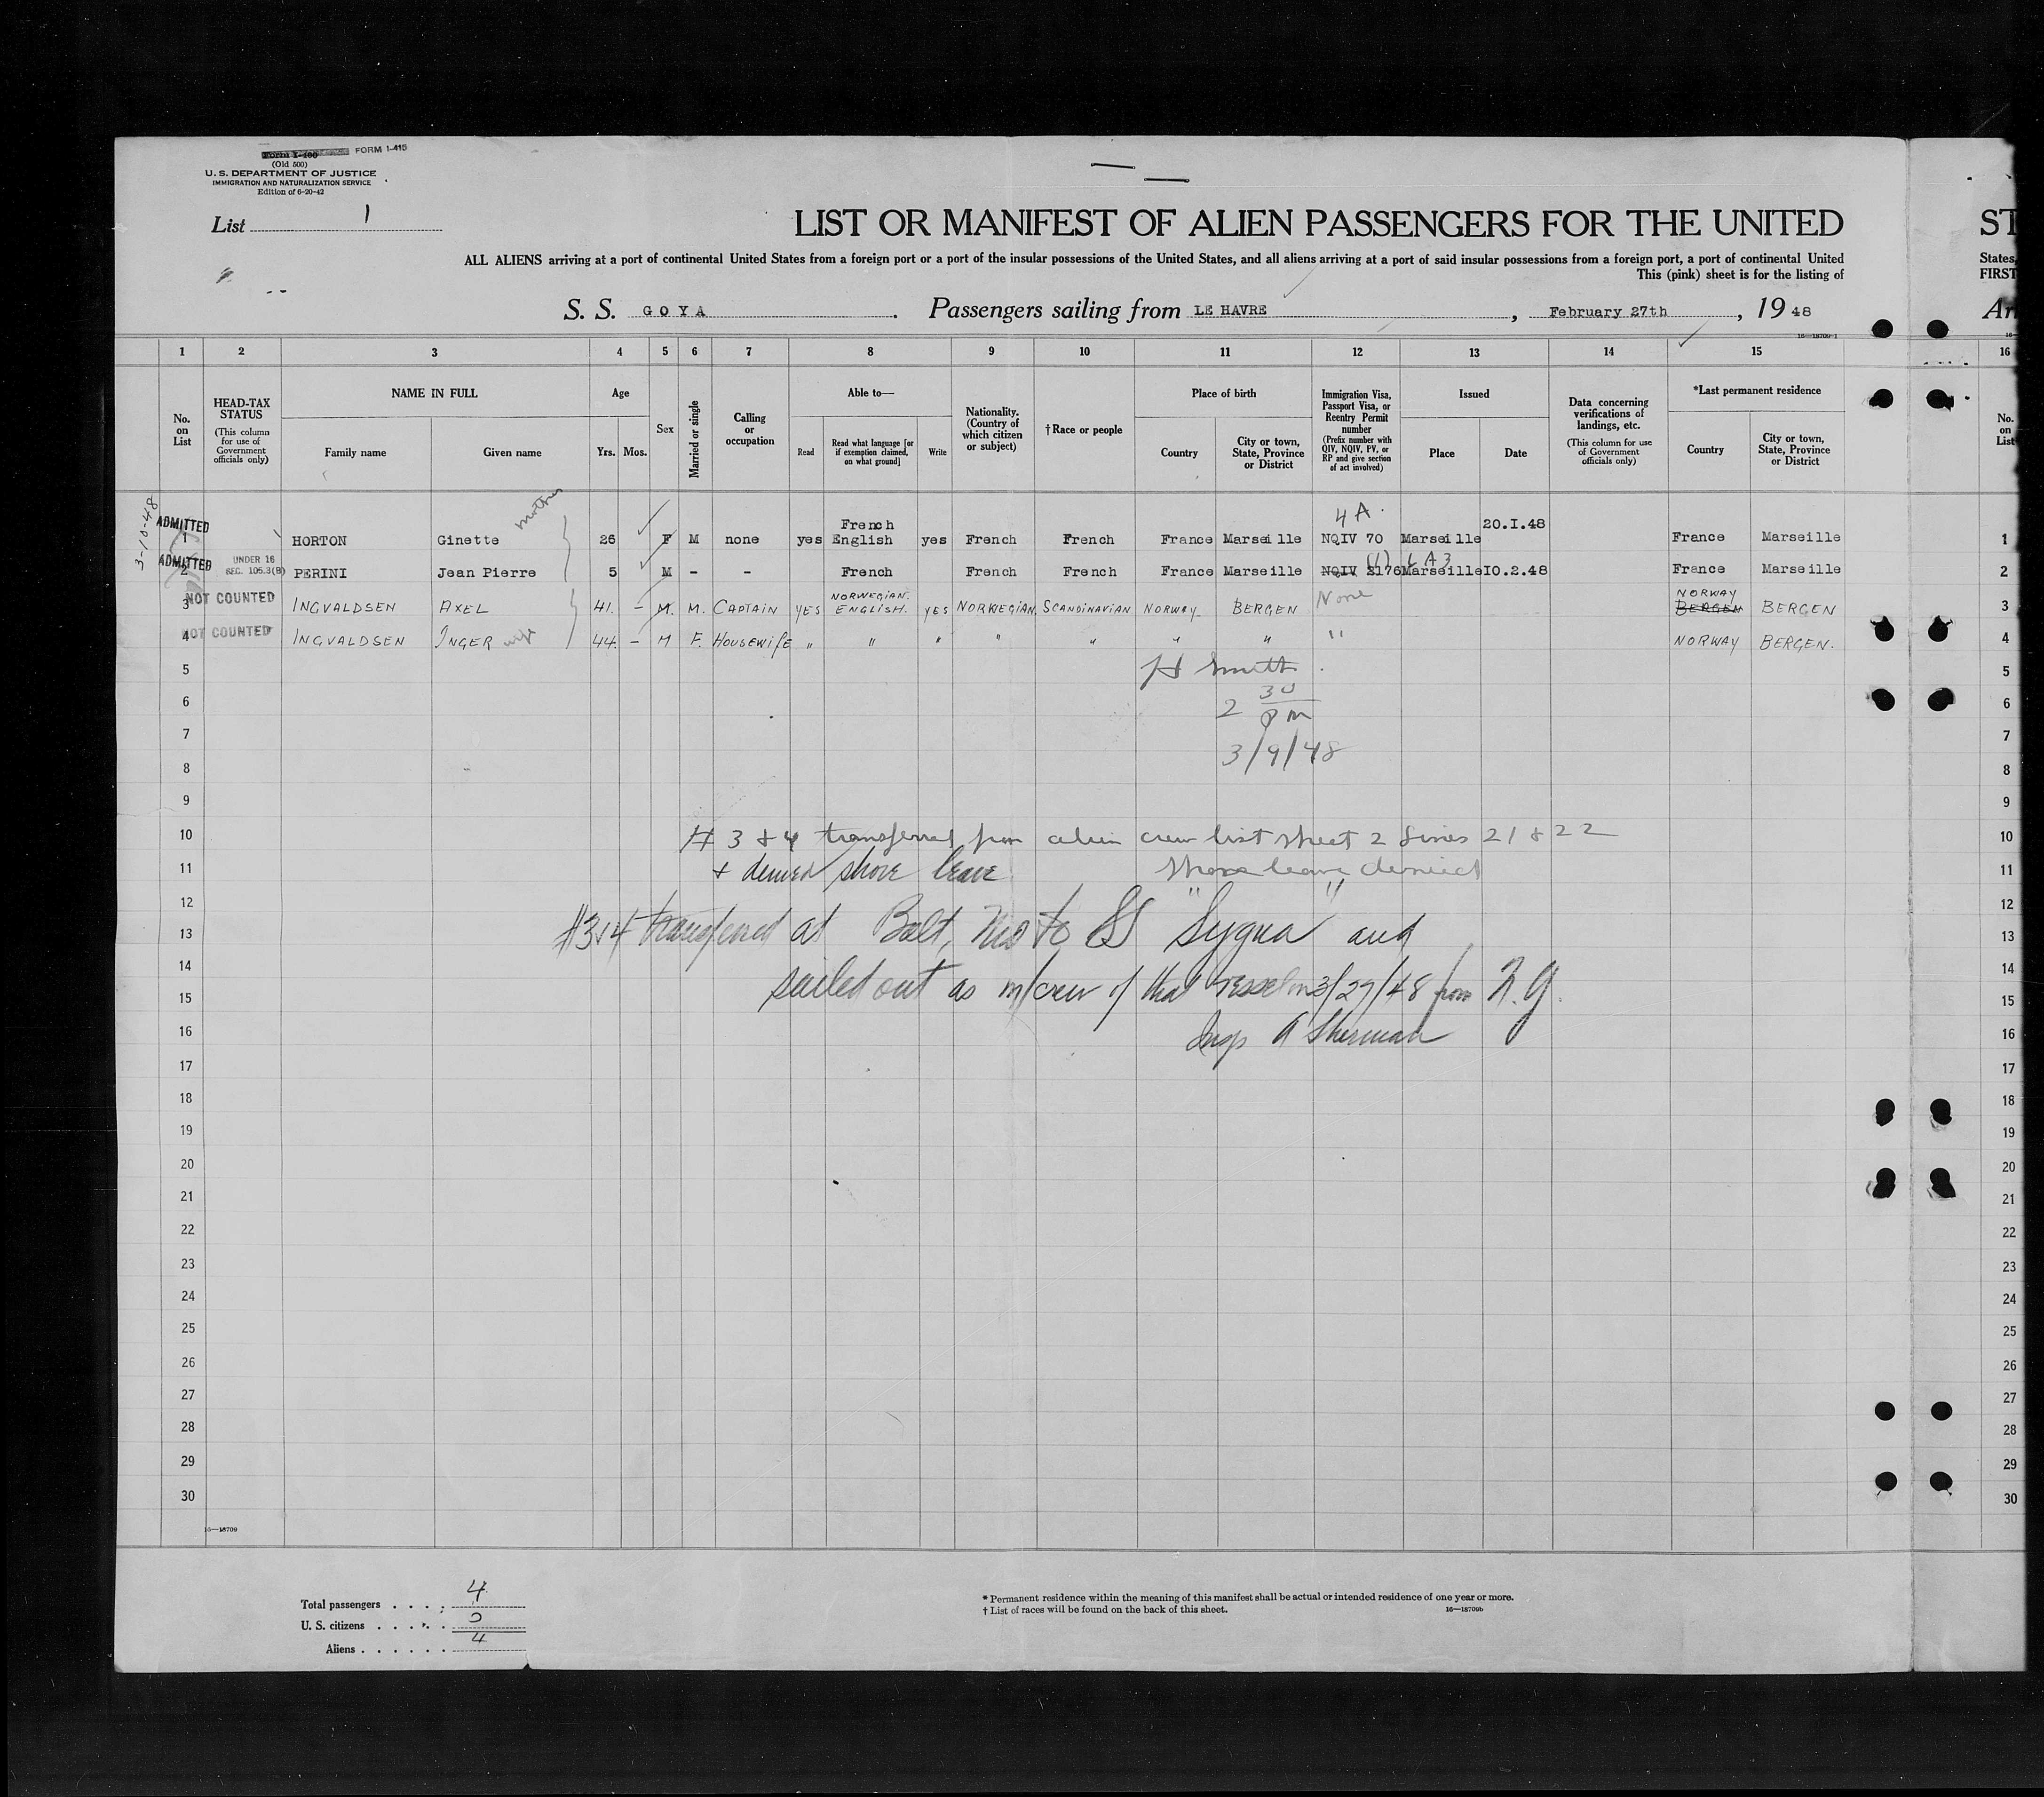 Form I-400 FORM I-415
(Old 500)
U. S. DEPARTMENT OF JUSTICE
IMMIGRATION AND NATURALIZATION SERVICE
Edition of 6-20-42
List 1
LIST OR MANIFEST OF ALIEN PASSENGERS FOR THE UNITED ST
ALL ALIENS arriving at a port of continental United States from a foreign port or a port of the insular possessions of the United States, and all aliens arriving at a port of said insular possessions from a foreign port, a port of continental United States,
This (pink) sheet is for the listing of FIRST
S. S. GOYA. Passengers sailing from LE HAVRE, February 27th, 19 48 Ar
16—18709-1
1 2 3 4 5 6 7 8 9 10 11 12 13 14 15 16
No. on List
HEAD-TAX STATUS
(This column for use of Government officials only)
NAME IN FULL
Family name Given name
Age
Yrs. Mos.
Sex
Married or single
Calling or occupation
Able to—
Read
Read what language [or if exemption claimed, on what ground]
Write
Nationality. (Country of which citizen or subject)
†Race or people
Place of birth
Country
City or town, State, Province or District
Immigration Visa, Passport Visa, or Reentry Permit number
(Prefix number with QIV, NQIV, PV, or RP and give section of act involved)
Issued
Place Date
Data concerning verifications of landings, etc.
(This column for use of Government officials only)
*Last permanent residence
Country
City or town, State, Province or District
No. on List
3-10-48
ADMITTED mother French 4A. 20.I.48
1 HORTON Ginette 26 F M none yes English yes French French France Marseille NQIV 70 Marseille France Marseille 1
ADMITTED UNDER 16 SEC. 105.3(B) (1) LA3
2 PERINI Jean Pierre 5 M - - French French French France Marseille NQIV 2176 Marseille I0.2.48 France Marseille 2
NOT COUNTED NORWEGIAN. None NORWAY
3 INGVALDSEN AXEL 41. - M. M. CAPTAIN YES ENGLISH. YES NORWEGIAN SCANDINAVIAN NORWAY BERGEN BERGEN BERGEN 3
NOT COUNTED
4 INGVALDSEN INGER wife 44. - M F. HOUSEWIFE " " " " " " " " NORWAY BERGEN. 4
5 H Smith 5
6 2 30 pm 6
7 3/9/48 7
8 8
9 9
10 # 3 & 4 transferred from alien crew list sheet 2 lines 21 & 22 10
11 & denied shore leave Shore leave denied 11
12 12
13 #3&4 transferred at Balt, Md to SS "Sygna" and 13
14 14
15 sailed out as m/crew of that vessel on 3/27/48 from N.Y. 15
16 Insp A Sherman 16
17 17
18 18
19 19
20 20
21 21
22 22
23 23
24 24
25 25
26 26
27 27
28 28
29 29
30 30
16—18709
Total passengers . . . . 4
U. S. citizens . . . . . 0
Aliens . . . . . . 4
* Permanent residence within the meaning of this manifest shall be actual or intended residence of one year or more.
† List of races will be found on the back of this sheet. 16—18709b